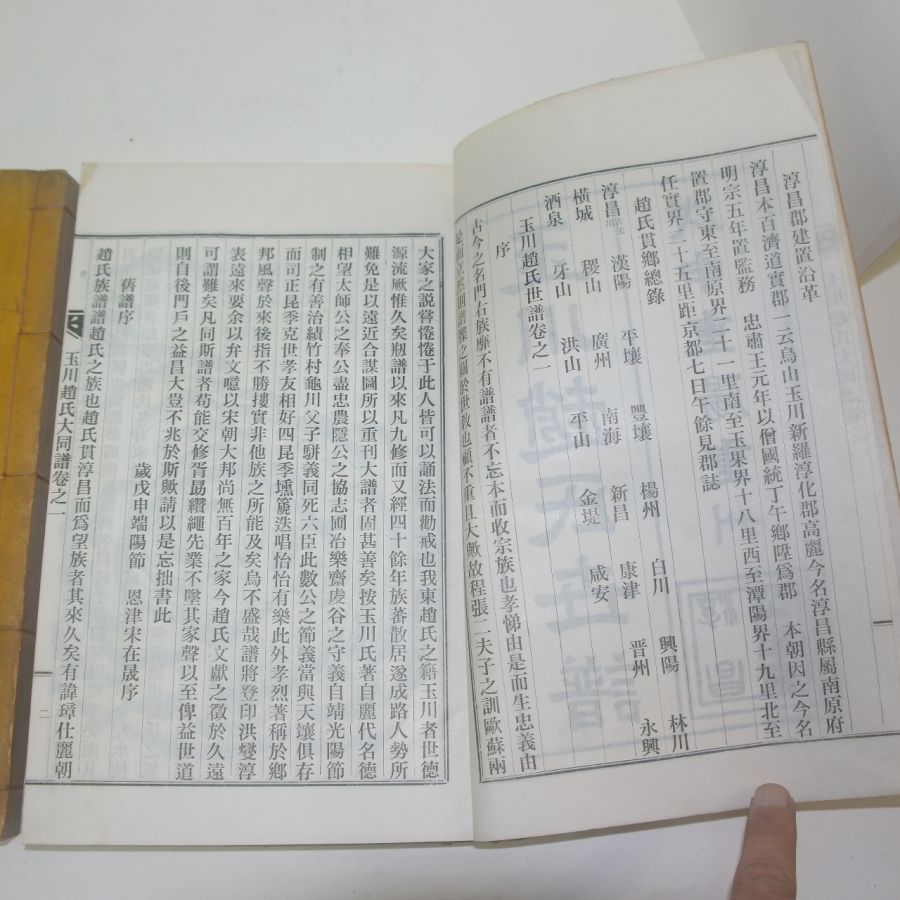 淳昌郡建置沿革
淳昌本百濟道實郡一云烏山玉川新羅淳化郡高麗今名淳昌縣屬南原府
明宗五年置監務 忠肅王元年以僧國統丁午鄉陞爲郡 本朝因之今名
置郡守東至南原界二十一里南至玉果界十八里西至潭陽界十九里北至
任實界二十五里距京都七日午餘見郡誌
趙氏貫鄉總錄
淳昌 漢陽 平壤 豐壤 楊州 白川 興陽 林川
橫城 稷山 廣州 南海 新昌 康津 晋州 永興
酒泉 牙山 洪山 平山 金堤 咸安
玉川趙氏世譜卷之一
序
古今之名門右族靡不有譜譜者不忘本而收宗族也孝悌由是而生忠義由
是而立然則譜牒之關於世敎也顧不重且大歟故程張二夫子之訓歐蘇兩
大家之說眷惓惓于此人皆可以誦法而勸戒也我東趙氏之籍玉川者世德
源流厥惟久矣刱譜以來凡九修而又經四十餘年族蕃散居遂成路人勢所
難免是以遠近合謀圖所以重刊大譜者固甚善矣按玉川氏著自麗代名德
相望太師公之奉公盡忠農隱公之協志圃冶樂齋虔谷之守義自靖光陽節
制之有善治績竹村龜川父子騈義同死六臣此數公之節義當與天壤俱存
而司正昆季克世孝友相好四昆季壎篪迭唱怡怡有樂此外孝烈著稱於鄉
邦風聲於來後指不勝摟實非他族之所能及矣烏不盛哉譜將登印洪燮淳
表遠來要余以弁文噫以宋朝大邦尚無百年之家今趙氏文獻之徵於久遠
可謂難矣凡同斯譜者苟能交修胥勗纘繩先業不墜其家聲以至俾益世道
則自後門戶之益昌大豈不兆於斯歟請以是忘拙書此
歲戊申端陽節 恩津宋在晟序
舊譜序
趙氏族譜譜趙氏之族也趙氏貫淳昌而爲望族者其來久矣有諱璋仕麗朝
玉川趙氏大同譜卷之一
二